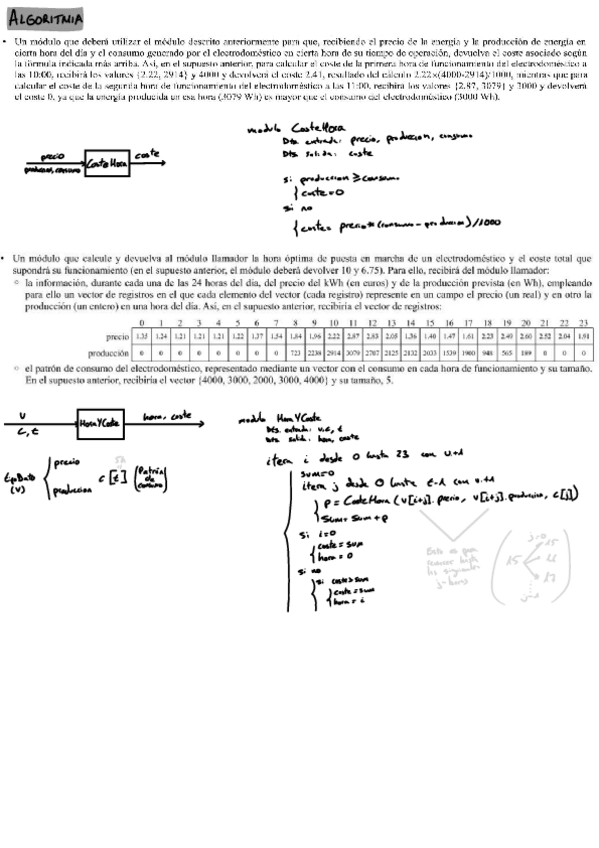 ALGORITMIA
• Un módulo que deberá utilizar el módulo descrito anteriormente para que, recibiendo el precio de la energía y la producción de energía en
cierta hora del día y el consumo generado por el electrodoméstico en cierta hora de su tiempo de operación, devuelva el coste asociado según
la fórmula indicada más arriba. Así, en el supuesto anterior, para calcular el coste de la primera hora de funcionamiento del electrodoméstico a
las 10:00, recibirá los valores {2.22, 2914} y 4000 y devolverá el coste 2.41, resultado del cálculo 2.22×(4000-2914)/1000, mientras que para
calcular el coste de la segunda hora de funcionamiento del electrodoméstico a las 11:00, recibirá los valores {2.87, 3079} y 3000 y devolverá
el coste 0, ya que la energía producida en esa hora (3079 Wh) es mayor que el consumo del electrodoméstico (3000 Wh).
modulo CosteHora
Dts. entrada: precio, produccion, consumo
Dts. Salida: coste
precio
produccion, consumo
CosteHora
coste
si produccion ≥ consumo
coste=0
si no
coste= precio*(consumo-produccion)/1000
• Un módulo que calcule y devuelva al módulo llamador la hora óptima de puesta en marcha de un electrodoméstico y el coste total que
supondrá su funcionamiento (en el supuesto anterior, el módulo deberá devolver 10 y 6.75). Para ello, recibirá del módulo llamador:
○ la información, durante cada una de las 24 horas del día, del precio del kWh (en euros) y de la producción prevista (en Wh), empleando
para ello un vector de registros en el que cada elemento del vector (cada registro) represente en un campo el precio (un real) y en otro la
producción (un entero) en una hora del día. Así, en el supuesto anterior, recibiría el vector de registros:
0 1 2 3 4 5 6 7 8 9 10 11 12 13 14 15 16 17 18 19 20 21 22 23
precio 1.35 1.24 1.21 1.21 1.21 1.22 1.37 1.54 1.84 1.96 2.22 2.87 2.83 2.05 1.36 1.48 1.47 1.61 2.23 2.49 2.60 2.52 2.04 1.91
producción 0 0 0 0 0 0 0 0 723 2238 2914 3079 2787 2125 2132 2033 1539 1900 948 565 189 0 0 0
○ el patrón de consumo del electrodoméstico, representado mediante un vector con el consumo en cada hora de funcionamiento y su tamaño.
En el supuesto anterior, recibiría el vector {4000, 3000, 2000, 3000, 4000} y su tamaño, 5.
v
c, t
HoraYCoste
hora, coste
modulo HoraYCoste
Dts. entrada: v, c, t
Dts. Salida: hora, coste
itera i desde 0 hasta 23 con i+1
tipoDato
(v)
precio
produccion
c [t] (Patrón de consumo)
sum=0
itera j desde 0 hasta t-1 con j+1
p = CosteHora (v[i+j].precio, v[i+j].produccion, c[j])
sum= sum+p
si i=0
coste = sum
hora = 0
si no
si coste>sum
coste = sum
hora = i
Esto es para
j-horas
j=0
15
15
j-1